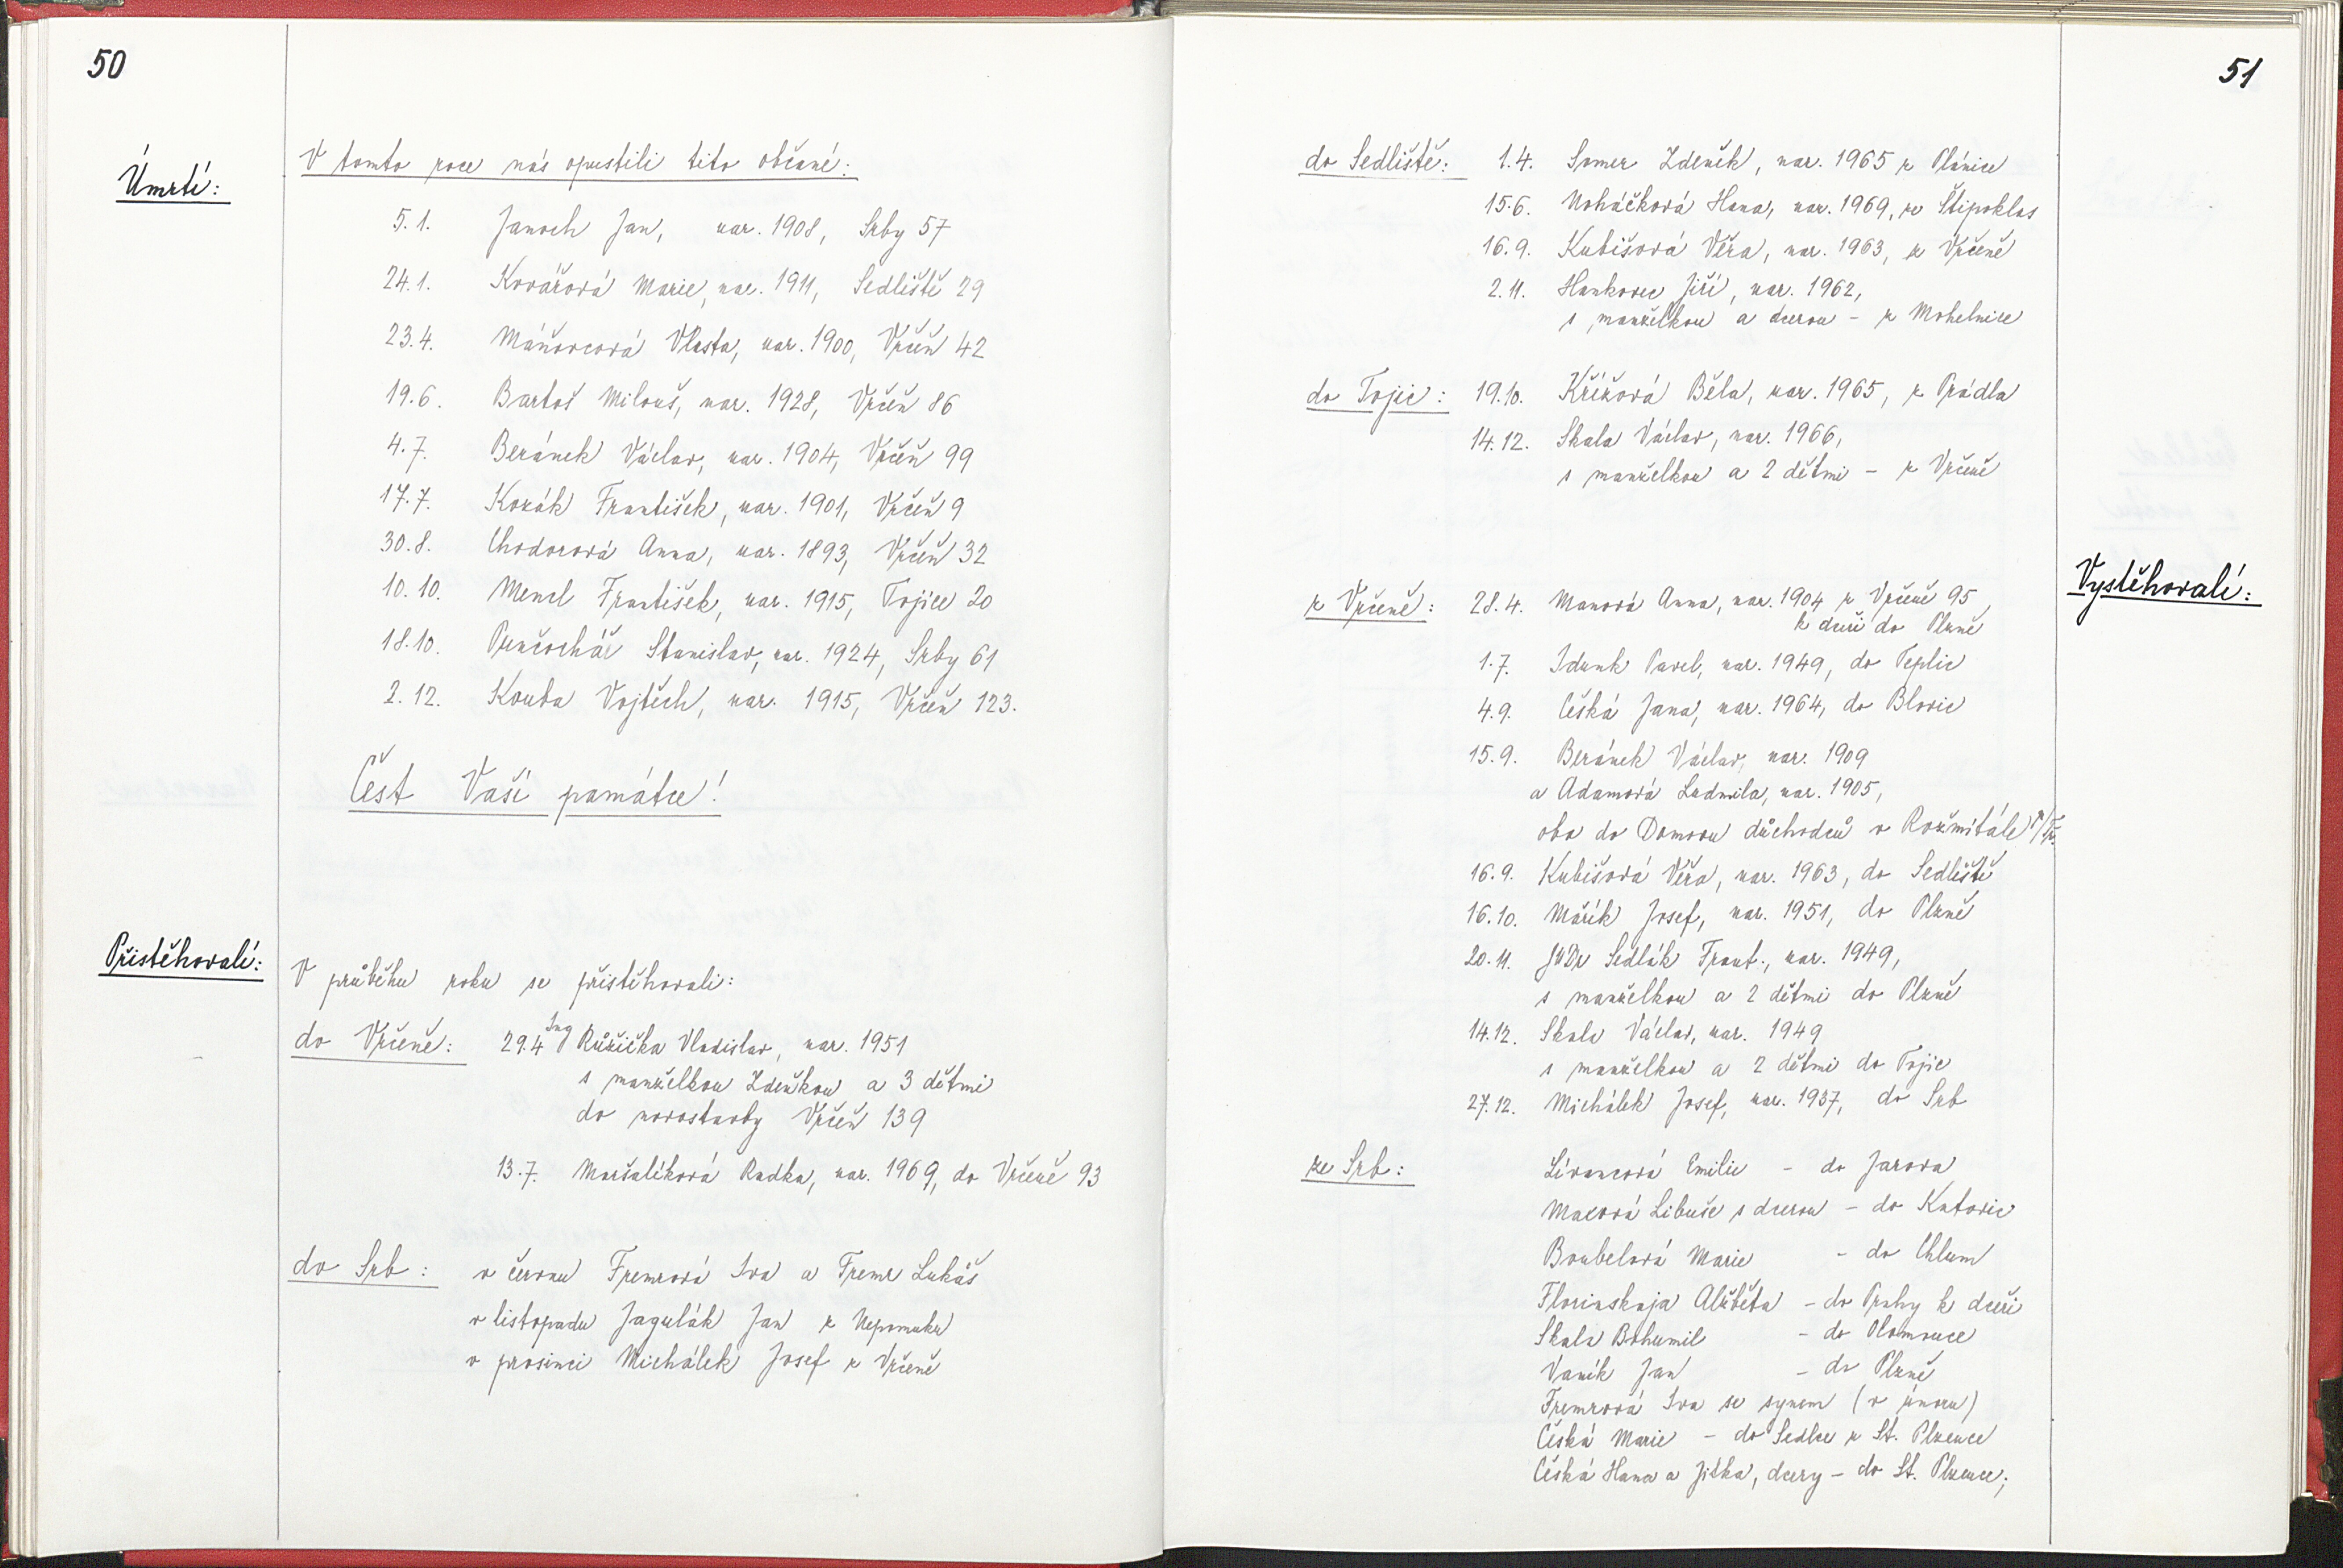 50
Úmrtí:
V tomto roce nás opustili tito občané:
5. 1. Janoch Jan, nar. 1908, Srby 57
24. 1. Kovářová Marie, nar. 1911, Sedliště 29
23. 4. Máňovcová Vlasta, nar. 1900, Vrčeň 42
19. 6. Bartoš Miloš, nar. 1928, Vrčeň 86
4. 7. Beránek Václav, nar. 1904, Vrčeň 99
17. 7. Kozák František, nar. 1901, Vrčeň 9
30. 8. Chodorová Anna, nar. 1893, Vrčeň 32
10. 10. Mencl František, nar. 1915, Tojice 20
18. 10. Punčochář Stanislav, nar. 1924, Srby 61
2. 12. Kouba Vojtěch, nar. 1915, Vrčeň 123.
Čest Vaší památce!
Přistěhovalí:
V průběhu roku se přistěhovali:
do Vrčeně: 29.4 Ing Růžička Vladislav, nar. 1951
s manželkou Zdeňkou a 3 dětmi
do novostavby Vrčeň 139
13. 7. Maršalíková Radka, nar. 1969, do Vrčeně 93
do Srb: v červnu Fremrová Iva a Fremr Lukáš
v listopadu Jagulák Jan z Nepomuku
v prosinci Michálek Josef z Vrčeně
51
do Sedliště: 1. 4. Somer Zdeněk, nar. 1965 z Plánice
15. 6. Noháčková Hana, nar. 1969, ze Štipoklas
16. 9. Kubišová Věra, nar. 1963, z Vrčeně
2. 11. Hankovec Jiří, nar. 1962,
s manželkou a dcerou - z Mohelnice
do Tojic: 19. 10. Křížová Běla, nar. 1965, z Prádla
14. 12. Skala Václav, nar. 1966,
s manželkou a 2 dětmi - z Vrčeně
Vystěhovalí:
z Vrčeně: 28. 4. Manová Anna, nar. 1904 z Vrčeně 95
k dceři do Plzně
1. 7. Idunk Pavel, nar. 1949, do Teplic
4. 9. Češká Jana, nar. 1964, do Blovic
15. 9. Beránek Václav, nar. 1909
a Adamová Ludmila, nar. 1905,
oba do Domova důchodců v Rožmitále p/Tř.
16. 9. Kubišová Věra, nar. 1963, do Sedliště
16. 10. Mařík Josef, nar. 1951, do Plzně
20. 11. JUDr Sedlák Frant., nar. 1949,
s manželkou a 2 dětmi do Plzně
14. 12. Skala Václav, nar. 1949
s manželkou a 2 dětmi do Tojic
27. 12. Michálek Josef, nar. 1937, do Srb
ze Srb: Lívancová Emilie - do Jarova
Macová Libuše s dcerou - do Kutovic
Boubelová Marie - do Chlum
Florinskaja Alžběta - do Prahy k dceři
Skala Bohumil - do Olomouce
Vaník Jan - do Plzně
Fremrová Iva se synem (v únoru)
Češká Marie - do Sedlce z St. Plzence
Češká Hana a Jitka, dcery - do St. Plzence;